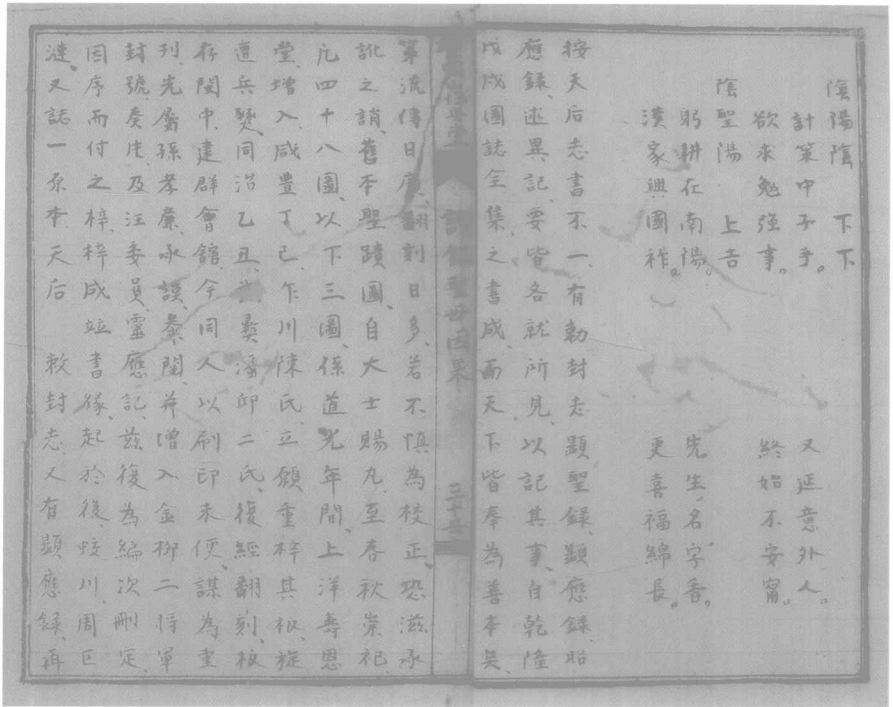 陰陽陰　下下
計策中子乎。　又延意外人。
欲求勉強事。　終始不安甯。
陰聖陽　上吉
躬耕在南陽。　先生名字香。
漢家興國祚。　更喜福綿長。
按天后志書不一、有勅封志顯聖錄、顯應錄、昭
應錄、述異記、要皆各就所見、以記其事、自乾隆
戊戌圖誌全集之書成、而天下皆奉為善本矣、
第流傳日廣、翻刻日多、若不慎為校正、恐滋承
訛之誚、舊本聖蹟圖、自大士賜丸、至春秋崇祀、
凡四十八圖、以下三圖、係道光年間、上洋壽恩
堂增入、咸豊丁巳、乍川陳氏、立願重梓其板、旋
遭兵燹、同治乙丑、武彝潘邱二氏、復經翻刻、板
存閩中、建群會館、今同人以刷印未便、謀為重
刊、先屬孫孝廉、承謨纂閱、并增入金柳二將軍
封號、奏底、及汪委員靈應記、茲復為編次刪定、
因序而付之梓、梓成竝書緣起於後、蛟川周巨
漣又誌一原本天后　敕封志、又有顯應錄、再
三十五